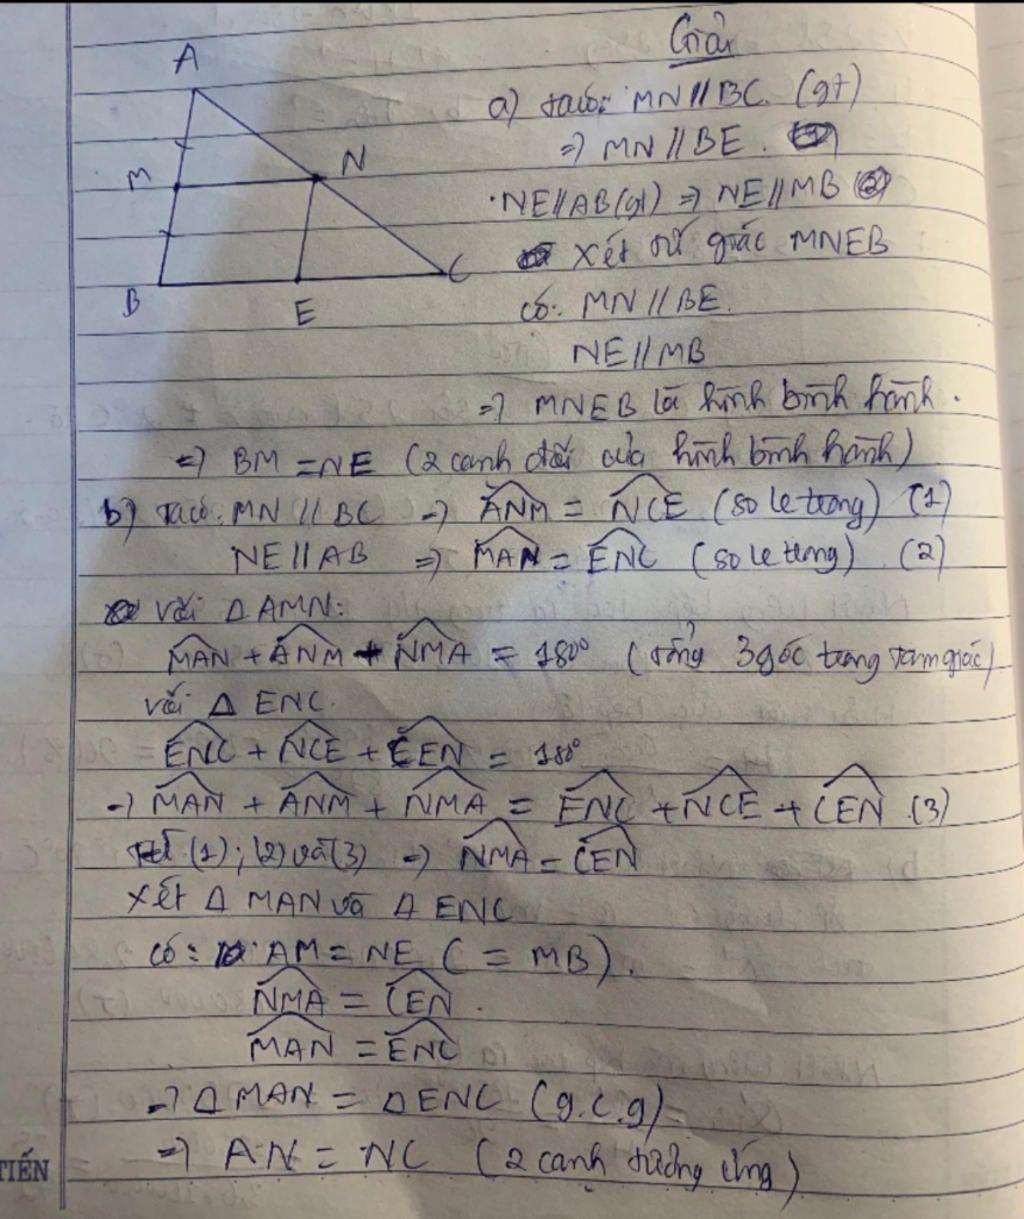 Giải
A
a) Ta có: MN // BC. (gt)
=> MN // BE.
N
M
·NE // AB (gt) => NE // MB (2)
Xét tứ giác MNEB
C
B
E
có: MN // BE.
NE // MB
=> MNEB là hình bình hành.
=> BM = NE (2 cạnh đối của hình bình hành)
b) Ta có: MN // BC => ANM = NCE (so le trong) (1)
NE // AB => MAN = ENC (so le trong) (2)
với Δ AMN:
MAN + ANM + NMA = 180° (tổng 3 góc trong tam giác)
với Δ ENC.
ENC + NCE + CEN = 180°
=> MAN + ANM + NMA = ENC + NCE + CEN (3)
Từ (1); (2) và (3) => NMA = CEN
Xét Δ MAN và Δ ENC
có: AM = NE (= MB).
NMA = CEN.
MAN = ENC
=> Δ MAN = Δ ENC (g.c.g)
=> AN = NC (2 cạnh tương ứng)
TIẾN